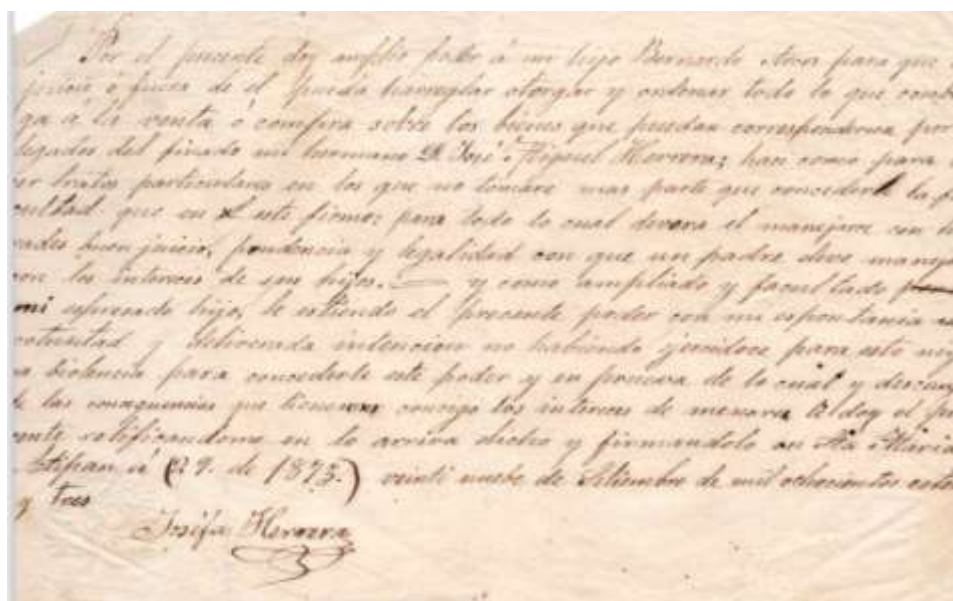 Por el precente doy amplio poder á mi hijo Bernardo para que
juicio ó fuera de el pueda harreglar otorgar y ordenar todo lo que
ga á la venta ó compra sobre los bienes que puedan corresponderme por
legados del finado mi hermano D. José Miguel Herrera; haci como para
cer tratos particulares en los que no tomare mas parte que concederle la fa
cultad que en el este firmo; para todo lo cual devera el manejarce con
buen juicio, prudencia y legalidad con que un padre deve manej
con los interces de sus hijos. y como ampliado y facultado
mi espresado hijo, le estiendo el precente poder con mi espontania
y deliverada intencion no habiendo para esto
biolencia para concederle este poder y en prueva de lo cual y
de las consequencias que tienen consigo los interces de menores le doy el pre
cente ratificandome en lo arriva dicho y firmandolo en Sta Maria
á (29. de 1873.) veinti nuebe de Setiembre de mil ochocientos
y tres
Josefa Herrera